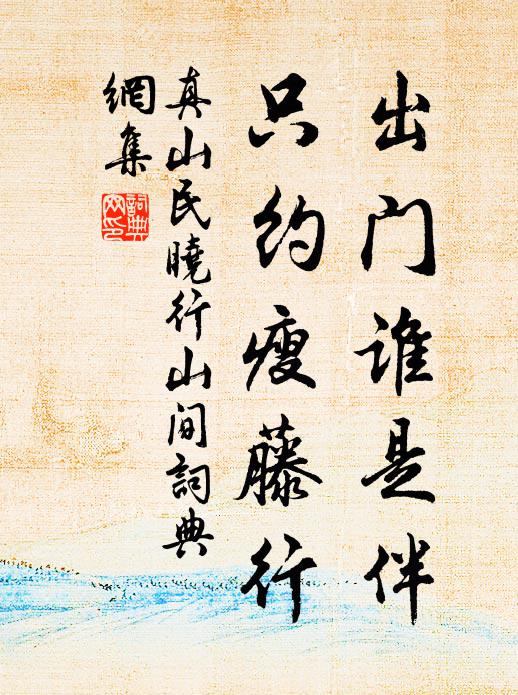 出门谁是伴
只约瘦藤行
真山民晓行山间詞典
網集
詞典
网印